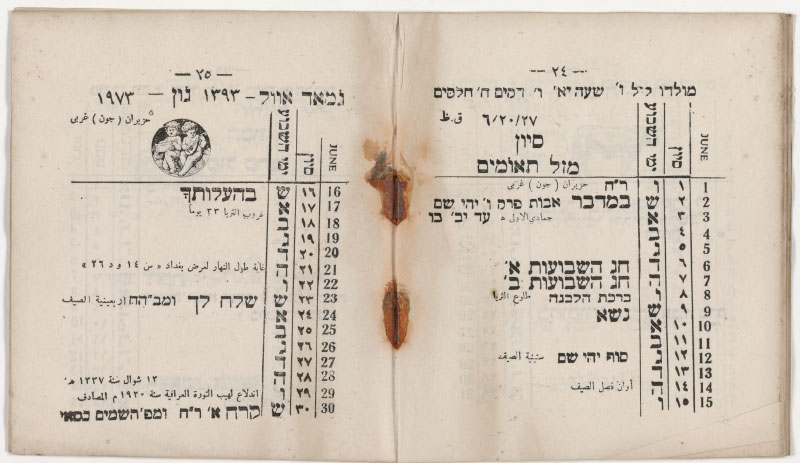 — ٢٤ —
מולדו ליל ו׳ שעה יא׳ ו׳ דקים ה׳ חלקים
٦/٢٠/٢٧ ق.ظ
סיון
מזל תאומים
ימי השבוע סיון JUNE
ו ١ 1 ר״ח حزيران ( جون ) غربي
ש ٢ 2 במדבר אבות פרק ו׳ יהי שם
א ٣ 3 جمادي الاولى עד יב׳ בו
ב ٤ 4
ג ٥ 5
ד ٦ 6 חג השבועות א׳
ה ٧ 7 חג השבועות ב׳
ו ٨ 8 ברכת הלבנה طلوع الثريا
ש ٩ 9 נשא
א ١٠ 10
ב ١١ 11
ג ١٢ 12 סוף יהי שם ستينية الصيف
ד ١٣ 13
ה ١٤ 14 اوان فصل الصيف
ו ١٥ 15
— ٢٥ —
גמאד אוול – ١٣٩٣ גון – ١٩٧٣
حزيران ( جون ) غربي
ימי השבוע סיון JUNE
ש ١٦ 16 בהעלותך
א ١٧ 17 غروب الثريا ٢٣ يوماً
ב ١٨ 18
ג ١٩ 19
ד ٢٠ 20
ה ٢١ 21 غاية طول النهار لعرض بغداد « س ١٤ و د ٢٦ »
ו ٢٢ 22
ש ٢٣ 23 שלח לך ומב״הח اربعينية الصيف
א ٢٤ 24
ב ٢٥ 25
ג ٢٦ 26
ד ٢٧ 27
ה ٢٨ 28 ١٣ شوال سنة ١٣٣٧ هـ
ו ٢٩ 29 اندلاع لهيب الثورة العراقية سنة ١٩٢٠ م المصادف
ש ٣٠ 30 קרח א׳ ר״ח ומפ׳ השמים כסאי